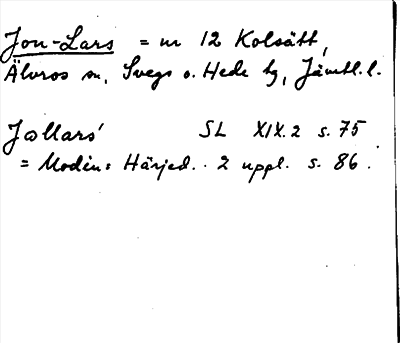 Jon-Lars = nr 12 Kolsätt,
Älvros sn, Svegs o. Hede tg, Jämtl. l.
Jollars' SL XIX.2 s. 75
= Modin: Härjed. 2 uppl. s. 86.